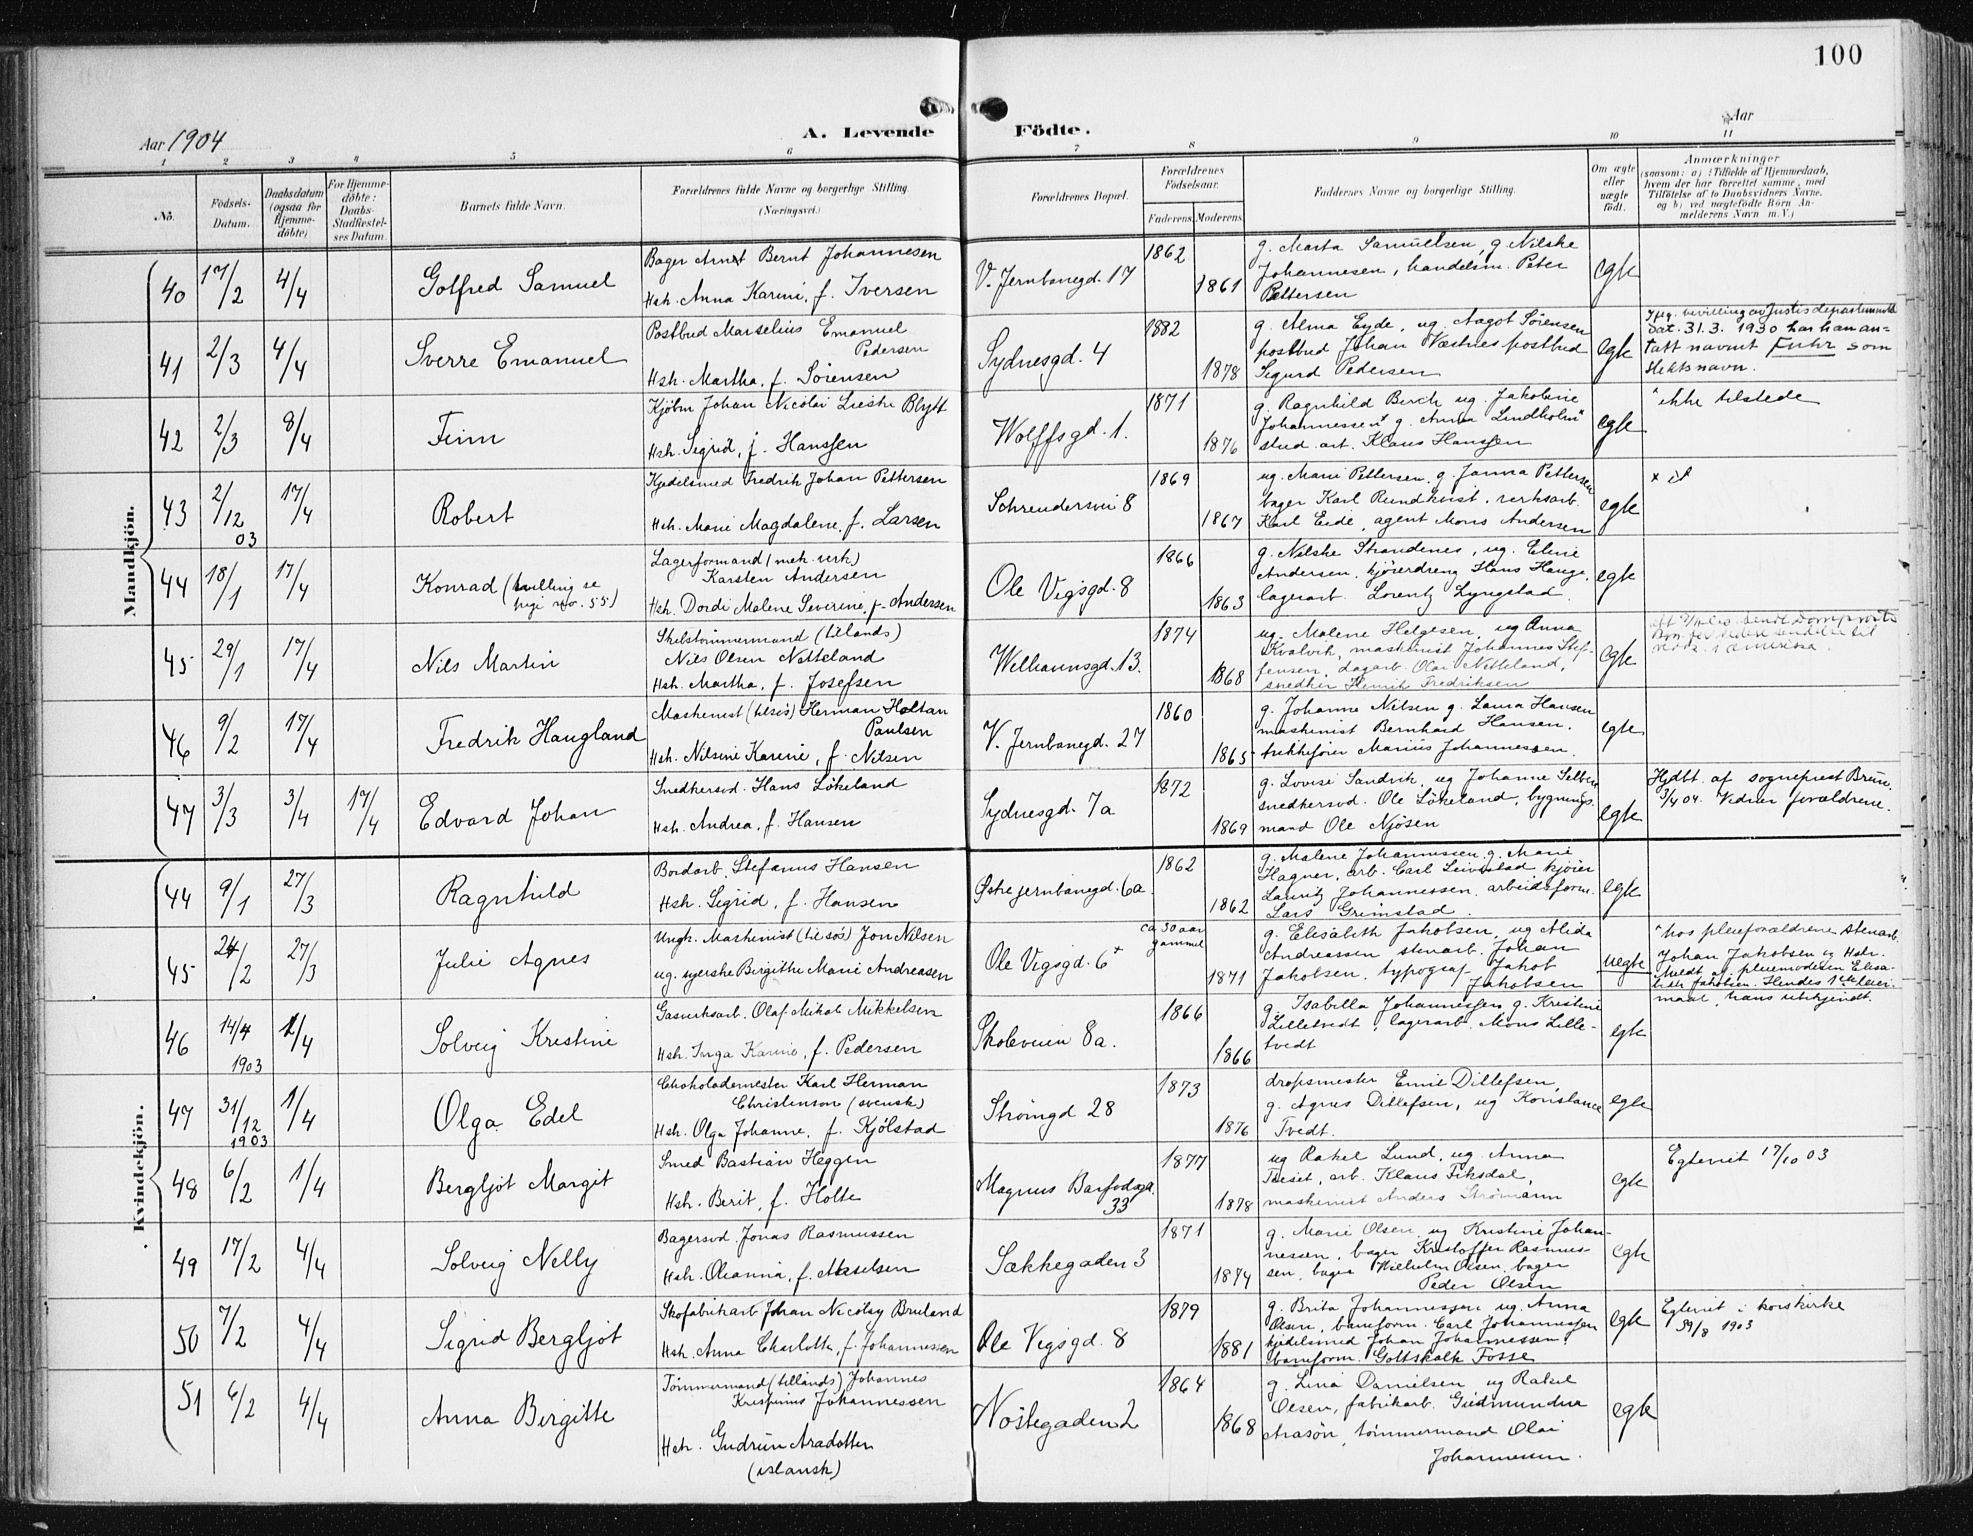 100
Aar 1904
A. Levende Födte.
Aar
1 2 3 4 5 6 7 8 9 10 11
No.
Födsels-Datum.
Daabsdatum (ogsaa for Hjemme-döbte)
For Hjemme-döbte: Daabs-Stadfæstel-ses Datum
Barnets fulde Navn.
Forældrenes fulde Navne og borgerlige Stilling. (Næringsvei.)
Forældrenes Bopæl.
Forældrenes Födselsaar.
Faderens Moderens
Faddernes Navne og borgerlige Stilling.
Om ægte eller uægte födt.
Anmærkninger
(saasom: a) i Tilfælde af Hjemmedaab,
hvem der har forrettet samme, med
Tilföielse af to Daabsvidners Navne.
og b) ved uægtefödte Börn An-
melderens Navn m. V.)
Mandkjön.
40 17/2 4/4 Gotfred Samuel
Bager Arnt Bernt Johannesen
Hstr. Anna Karine, f. Iversen
V. Jernbanegd. 17
1862 1861
g. Marta Samuelsen, g. Nilske
Johannesen, handelsm. Peter
Pettersen
egte
41 2/3 4/4 Sverre Emanuel
Postbud Marselius Emanuel
Pedersen
Hstr. Martha, f. Sörensen
Sydnesgd. 4
1882 1878
g. Alma Eyde, ug. Aagot Sörensen
postbud Johan Næstnes postbud
Sigurd Pedersen
egte
Iflg. bevilling av Justisdepartementet
dat. 31.3. 1930 har han an-
tatt navnet Fuhr som
slektsnavn.
42 2/3 8/4 Finn
Kjöbm Johan Nicolai Lieske Blytt
Hstr. Sigrid, f. Hanssen
Wolffsgd. 1.
1871 1876
g. Ragnhild Berch ug. Jakobine
Johannessen g. Anna Lindholm
stud. art. Klaus Hanssen
egte
ikke tilstede
43 2/12 03 17/4 Robert
Kjedelsmed Fredrik Johan Pettersen
Hstr. Marie Magdalene, f. Larsen
8
1869 1867
ug. Marie Pettersen, g. Janna Pettersen
bager Karl Rundkvist, verksarb.
Karl Eide, agent Mons Andersen
egte
44 18/1 17/4 Konrad (tvilling se
pige no. 55)
Lagerformand (mek. verk)
Karsten Andersen
Hstr. Dordi Malene Severine, f. Andersen
Ole Vigsgd. 8
1866 1863
g. Nilske Strandenes, ug. Eline
Andersen, kjöredreng Hans Hauge,
lagerarb. Lorentz Lyngstad
egte
45 29/1 17/4 Nils Martin
Skibstömmermand (tillands)
Nils Olsen Netteland
Hstr. Martha, f. Josefsen
Welhavnsgd. 13.
1874 1868
ug. Malene Helgesen, ug Anna
Kvalvik, maskinist Johannes Stef-
fensen, dagarb. Olai Netteland,
snedker Henrik Fredriksen
egte
46 9/2 17/4 Fredrik Haugland
Maskinist (tilsös) Herman Holtan
Paulsen
Hstr. Nilsine Karine, f. Nilsen
V. Jernbanegd. 27
1860 1865
g. Johanne Nilsen g. Laura Hansen
maskinist Bernhard Hansen.
Marius Johannessen.
egte
47 3/3 3/4 17/4 Edvard Johan
Snedkersvd. Hans Lökeland
Hstr. Andrea, f. Hansen
Sydnesgd. 7a
1872 1869
g. Lovise Sandvik, ug Johanne
snedkersvd. Ole Lökeland, bygnings.
mand Ole Njösen
egte
Hjdbt. af sogneprest Bruun.
3/4 04. Vidner forældrene.
Kvindekjön.
44 9/1 27/3 Ragnhild
Bordarb. Stefanus Hansen
Hstr. Sigrid, f. Hansen
Østre jernbanegd. 6a.
1862 1862
g. Malene Johannessen g. Marie
Hagner, arb. Carl kjörer
Lauritz Johannessen, arbeidsform.
Lars Grimstad.
egte
45 24/2 27/3 Julie Agnes
Ungk. Maskinist (tilsös) Jon Nilsen
ug. syerske Birgithe Marie Andreasen
Ole Vigsgd. 6 +
ca 30 aar
gammel 1871
g. Elisabeth Jakobsen, ug Alida
Andreassen stenarb. Johan
Jakobsen, typograf Jakob
Jakobsen
uegte
hos pleieforældrene stenarb.
Johan Jakobsen og Hstr.
Meldt af pleiemoderen Elisa-
beth Jakobsen. Hendes 1ste leier-
maal, hans ubekjendt.
46 14/4 1903 1/4 Solveig Kristine
Gasverksarb. Olaf Mikal Mikkelsen
Hstr. Inga Karine, f. Pedersen
Skoleveien 8a.
1866 1866
g. Isabella Johannessen g. Kristine
Lilletvedt, lagerarb. Mons Lille-
tvedt
egte
47 31/12 1903 1/4 Olga Edel
Chokolademester Karl Herman
Christenson (svensk)
Hstr. Olga Johanne, f. Kjölstad
Strömgd 28
1873 1876
dropsmester Emil Ditlefsen,
g. Agnes Ditlefsen, ug Konstance
Tvedt.
egte
48 6/2 1/4 Bergljot Margit
Smed Bastian Heggen
Hstr. Berit, f. Holte
Magnus Barfodsgd.
33
1877 1878
ug Rakel Lund, ug. Anna
arb. Klaus Fiksdal,
maskinist Anders Strömann
egte
Egteviet 17/10 03
49 17/2 4/4 Solveig Nelly
Bagersvd. Jonas Rasmussen
Hstr. Oleanna, f. Akselsen
Sækkegaden 3
1871 1874
g. Marie Olsen, ug Kristine Johan-
nessen, bager Kristoffer Rasmus-
sen, bager Wilhelm Olsen, bager
Peder Olsen
egte
50 7/2 4/4 Sigrid Bergljot
Skofabrikarb Johan Nicolay Bruland
Hstr. Anna Charlotte, f. Johannessen
Ole Vigsgd. 8
1879 1881
g. Brita Johannessen ug. Anna
Olsen, baneform. Carl Johannessen
kjedelsmed Johan Johannessen,
baneform. Gottskalk Fosse
egte
Egteviet i korskirke
1903
51 6/2 4/4 Anna Bergitte
Tömmermand (tillands) Johannes
Krispinus Johannessen
Hstr. Gudrun Aradotter
(islansk)
Nöstegaden 2
1864 1868
g. Lina Danielsen, ug Rakel
Olsen, fabrikarb. Gudmundur
Arasön, tömmermand Olai
Johannessen.
egte